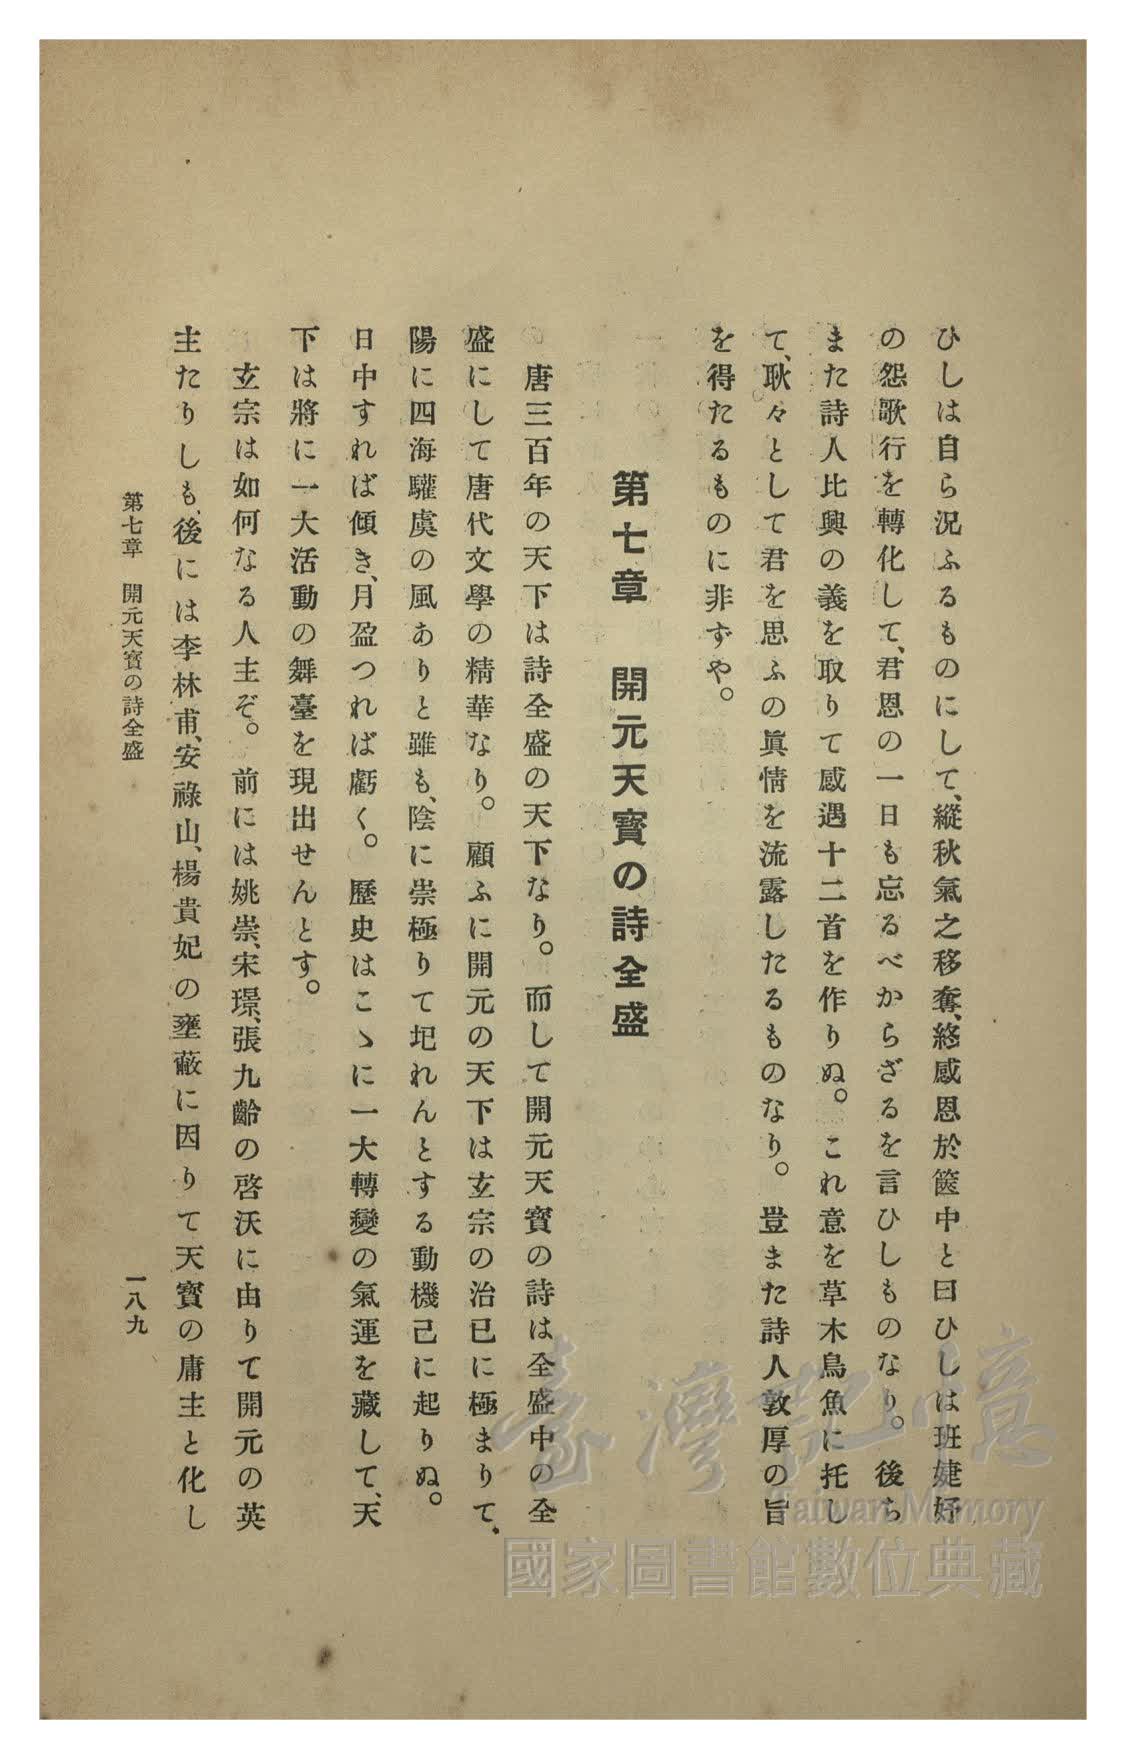 ひしは自ら況ふるものにして、縱秋氣之移奪、終感恩於篋中と曰ひしは班婕妤
の怨歌行を轉化して、君恩の一日も忘るべからざるを言ひしものなり。後ち
また詩人比興の義を取りて感遇十二首を作りぬ。これ意を草木鳥魚に托し
て、耿々として君を思ふの眞情を流露したるものなり。豈また詩人敦厚の旨
を得たるものに非ずや。
第七章　開元天寳の詩全盛
唐三百年の天下は詩全盛の天下なり。而して開元天寳の詩は全盛中の全
盛にして唐代文學の精華なり。顧ふに開元の天下は玄宗の治已に極まりて、
陽に四海驩虞の風ありと雖も、陰に崇極りて圯れんとする動機已に起りぬ。
日中すれば傾き、月盈つれば虧く。歷史はこゝに一大轉變の氣運を藏して、天
下は將に一大活動の舞臺を現出せんとす。
玄宗は如何なる人主ぞ。前には姚崇、宋璟、張九齡の啓沃に由りて開元の英
主たりしも、後には李林甫、安祿山、楊貴妃の壅蔽に因りて天寳の庸主と化し
第七章　開元天寳の詩全盛
一八九
臺灣記憶
Taiwan Memory
國家圖書館數位典藏